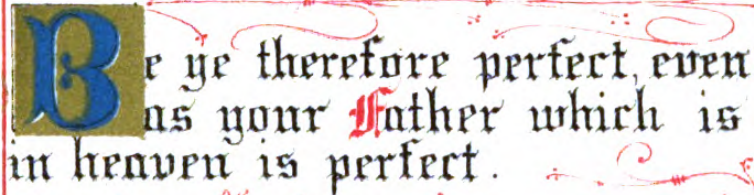 Be ye therefore perfect, even
as your Father which is
in heaven is perfect.